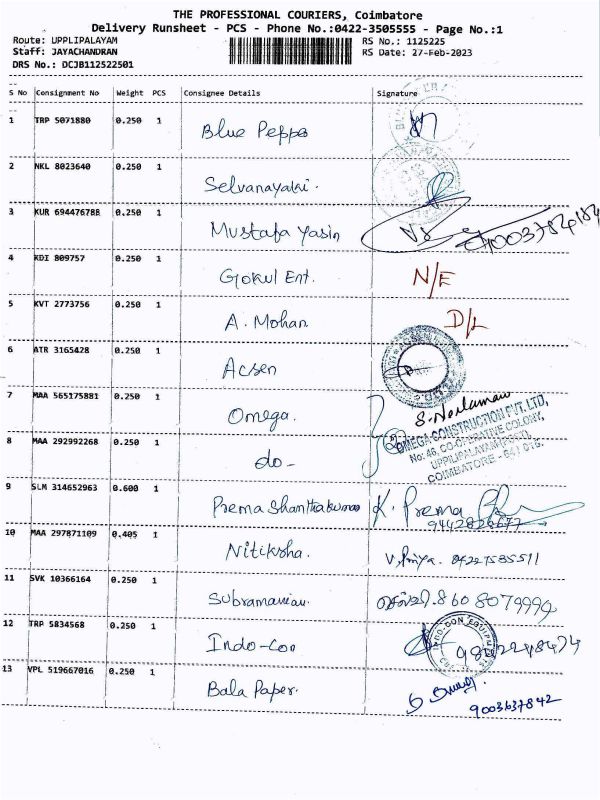 THE PROFESSIONAL COURIERS, Coimbatore
Delivery Runsheet - PCS - Phone No.:0422-3505555 - Page No.:1
Route: UPPLIPALAYAM RS No.: 1125225
Staff: JAYACHANDRAN RS Date: 27-Feb-2023
DRS No.: DCJB112522501
S No Consignment No Weight PCS Consignee Details Signature
1 TRP 5071880 0.250 1 Blue Peppe
2 NKL 8023640 0.250 1 Selvanayaki.
3 KUR 694476788 0.250 1 Mustafa Yasin
4 KDI 809757 0.250 1 Gokul Ent. N/E
5 KVT 2773756 0.250 1 A. Mohan D/L
6 ATR 3165428 0.250 1 Acsen
7 MAA 565175881 0.250 1 Omega.
OMEGA CONSTRUCTION PVT. LTD,
No: 46, CO-OPERATIVE COLONY,
UPPILIPALAYAM
COIMBATORE - 641 015.
8 MAA 292992268 0.250 1 do-
9 SLM 314652963 0.600 1 Prema Shanthakumar K. Prema
10 MAA 297871109 0.405 1 Nitiksha. V. Priya. 04227535511
11 SVK 10366164 0.250 1 Subramanian. செல்வி. 8608079999
12 TRP 5834568 0.250 1 Indo-Con
13 VPL 519667016 0.250 1 Bala Paper.
9003637842